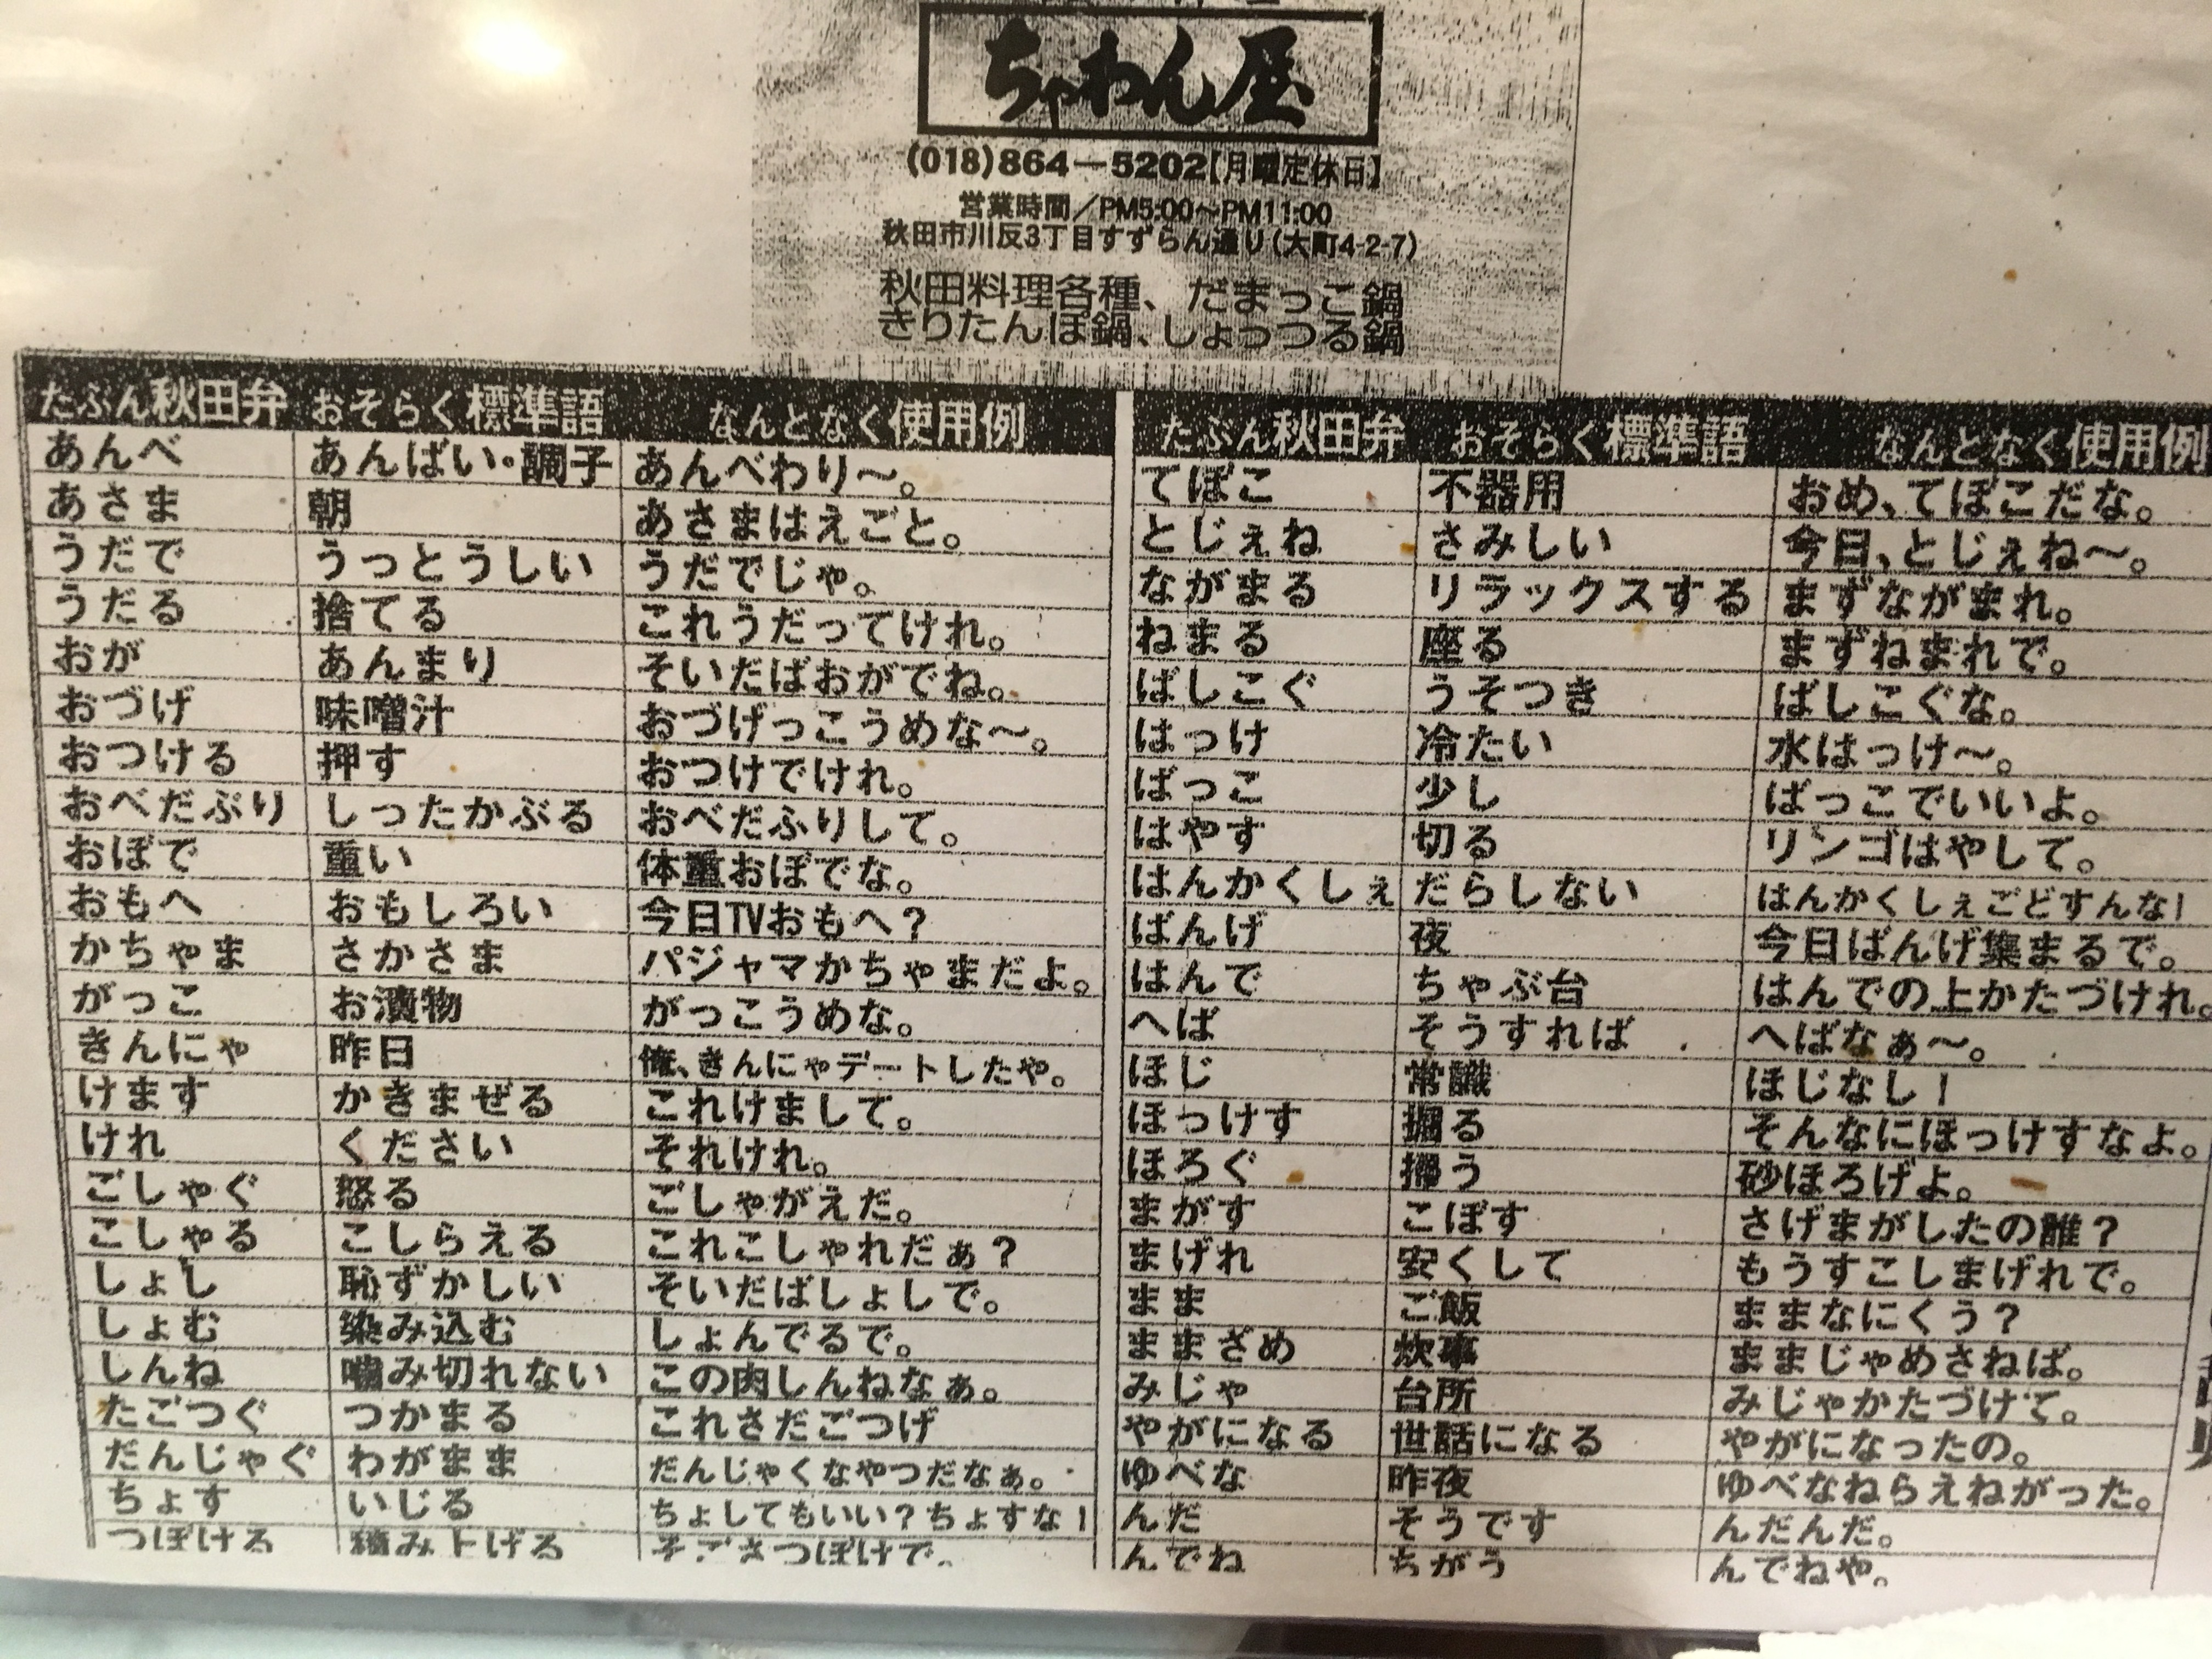 ちゃわん屋
(018)864-5202【月曜定休日】
営業時間/PM5:00〜PM11:00
秋田市川反3丁目すずらん通り(大町4-2-7)
秋田料理各種、だまっこ鍋
きりたんぽ鍋、しょっつる鍋
たぶん秋田弁 おそらく標準語 なんとなく使用例
あんべ あんばい・調子 あんべわり〜。
あさま 朝 あさまはえごと。
うだで うっとうしい うだでじゃ。
うだる 捨てる これうだってけれ。
おが あんまり そいだばおがでね。
おづげ 味噌汁 おづげっこうめな〜。
おつける 押す おつけでけれ。
おべだぶり しったかぶる おべだふりして。
おぼで 重い 体重おぼでな。
おもへ おもしろい 今日TVおもへ?
かちゃま さかさま パジャマかちゃまだよ。
がっこ お漬物 がっこうめな。
きんにゃ 昨日 俺、きんにゃデートしたや。
けます かきまぜる これけまして。
けれ ください それけれ。
ごしゃぐ 怒る ごしゃがえだ。
こしゃる こしらえる これこしゃれだぁ?
しょし 恥ずかしい そいだばしょしで。
しょむ 染み込む しょんでるで。
しんね 噛み切れない この肉しんねなぁ。
たごつぐ つかまる これさだごつげ
だんじゃぐ わがまま だんじゃくなやつだなぁ。
ちょす いじる ちょしてもいい?ちょすな!
つぼける 積み上げる そごさつぼけで。
たぶん秋田弁 おそらく標準語 なんとなく使用例
てぼこ 不器用 おめ、てぼこだな。
とじぇね さみしい 今日、とじぇね〜。
ながまる リラックスする まずながまれ。
ねまる 座る まずねまれで。
ばしこぐ うそつき ばしこぐな。
はっけ 冷たい 水はっけ〜。
ばっこ 少し ばっこでいいよ。
はやす 切る リンゴはやして。
はんかくしぇ だらしない はんかくしぇごどすんな!
ばんげ 夜 今日ばんげ集まるで。
はんで ちゃぶ台 はんでの上かたづけれ。
へば そうすれば へばなぁ〜。
ほじ 常識 ほじなし!
ほっけす 掘る そんなにほっけすなよ。
ほろぐ 掃う 砂ほろげよ。
まがす こぼす さげまがしたの誰?
まげれ 安くして もうすこしまげれで。
まま ご飯 ままなにくう?
ままざめ 炊事 ままじゃめさねば。
みじゃ 台所 みじゃかたづけて。
やがになる 世話になる やがになったの。
ゆべな 昨夜 ゆべなねらえねがった。
んだ そうです んだんだ。
んでね ちがう んでねや。